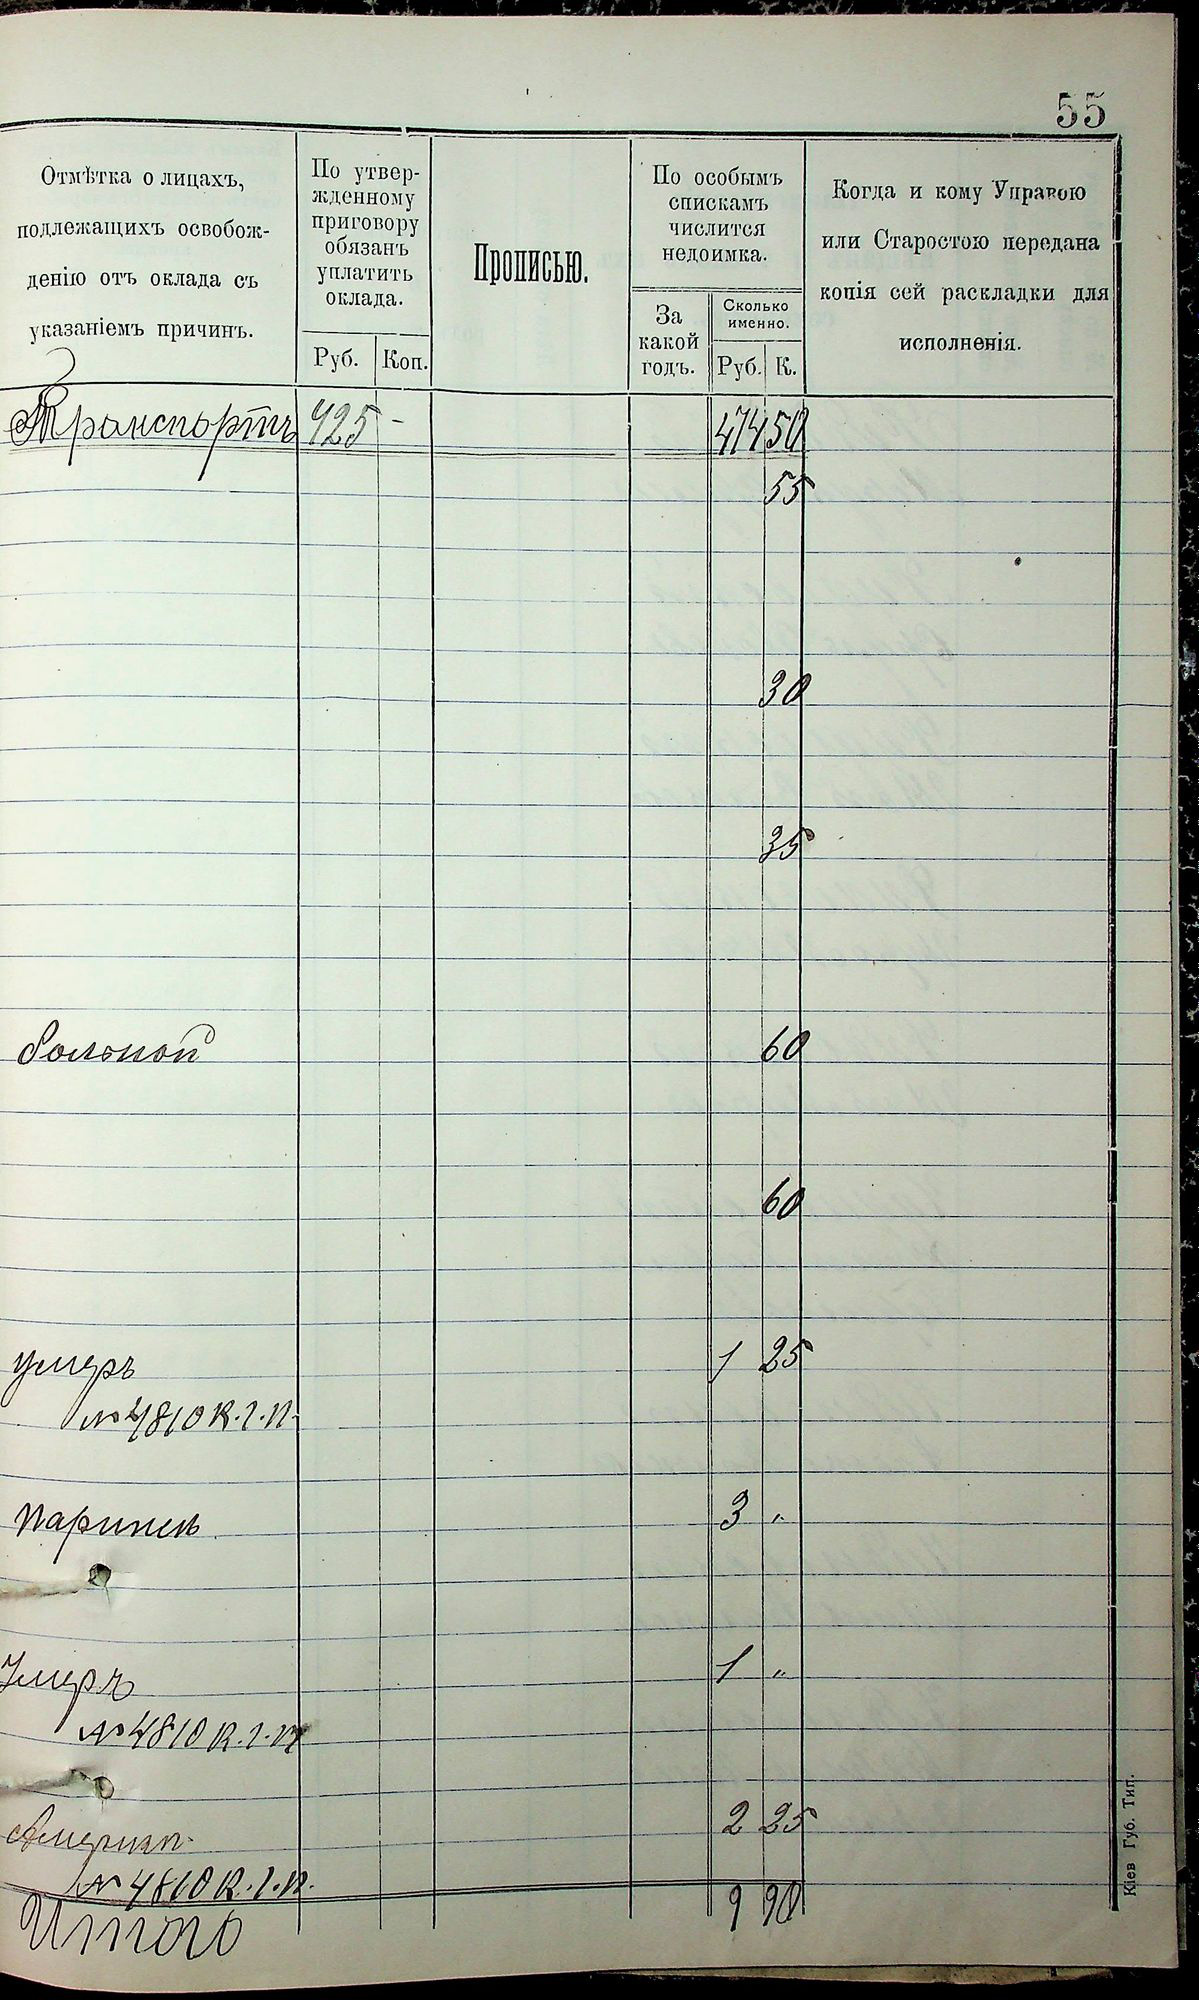 55
Отмѣтка о лицахъ,
подлежащихъ освобож-
денію отъ оклада съ
указаніемъ причинъ.
По утвер-
жденному
приговору
обязанъ
уплатить
оклада.
Руб. Коп.
Прописью.
По особымъ
спискамъ
числится
недоимка.
За
какой
годъ.
Сколько
именно.
Руб. К.
Когда и кому Управою
или Старостою передана
копія сей раскладки для
исполненія.
Транспортъ 425 - 474 50
55
30
35
больной 60
60
умеръ 1 25
№ 4810 К.Г.П.
3 „
Умеръ 1 „
№ 4810 К.Г.П.
2 25
№ 4810 К.Г.П.
Итого 9 90
Кіев Губ. Тип.